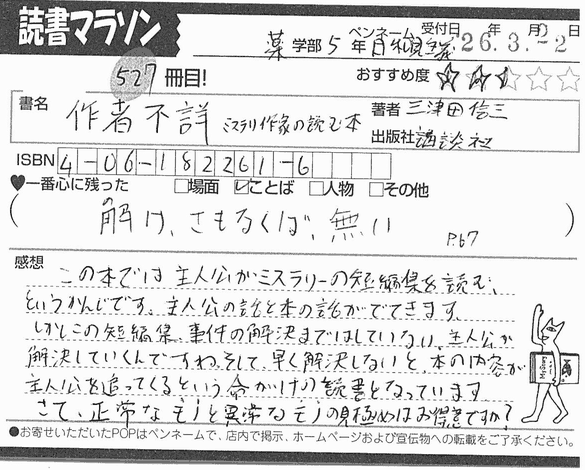 読書マラソン
薬 学部 5 年 ペンネーム 受付日 26.3.-2 年 月 日
527 冊目!
おすすめ度 ☆☆☆☆☆
書名 作者不詳 ミステリ作家の読む本
著者 三津田信三
出版社 講談社
ISBN 4-06-182261-6
♥一番心に残った □場面 ☑ことば □人物 □その他
(解け、さもなくば、無い P.67)
感想
この本では主人公がミスラリーの短編集を読む、
というかんじです。主人公の話と本の話がでてきます。
しかしこの短編集、事件の解決まではしていない。主人公が
解決していくんですね。そして、早く解決しないと、本の内容が
主人公を追ってくるという命がけの読書となっています
さて、正常なモノと異常なモノの見極めはお得意ですか?
●お寄せいただいたPOPはペンネームで、店内で掲示、ホームページおよび宣伝物への転載をご了承ください。